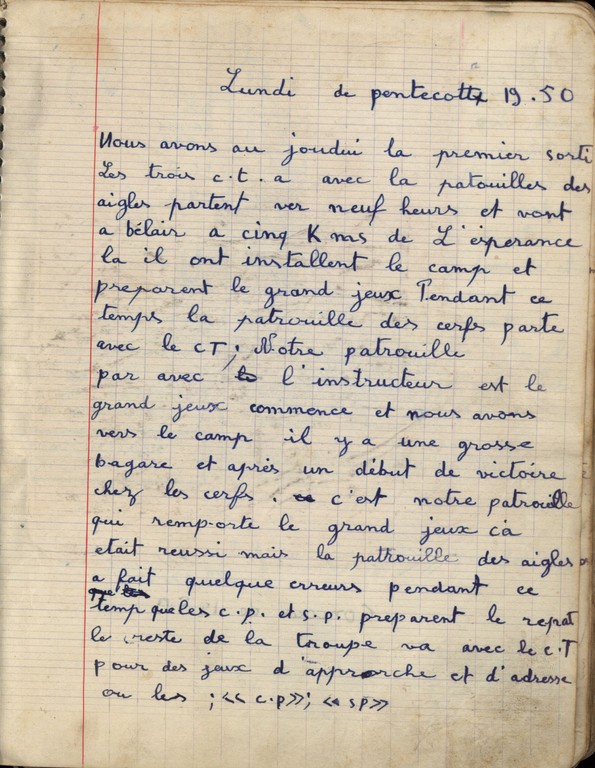 Lundi de pentecotte 19.50
Nous avons au joudui la premier sorti
Les trois c.t.a avec la patouilles des
aigles partent ver neuf heurs et vont
a bélair a cinq Kms de L'ésperance
la il ont installent le camp et
preparent le grand jeux Pendant ce
temps la patrouille des cerfs parte
avec le CT; Notre patrouille
par avec l'instructeur est le
grand jeux commence et nous avons
vers le camp il y a une grosse
bagare et après un début de victoire
chez les cerfs. c'est notre patrouille
qui remporte le grand jeux ca
etait reussi mais la patrouille des aigles
a fait quelque erreurs pendant ce
temp que les c.p. et s.p. preparent le repat
le reste de la troupe va avec le c.T
pour des jeux d'approche et d'adresse
ou les ; << c.p>>; << sp>>